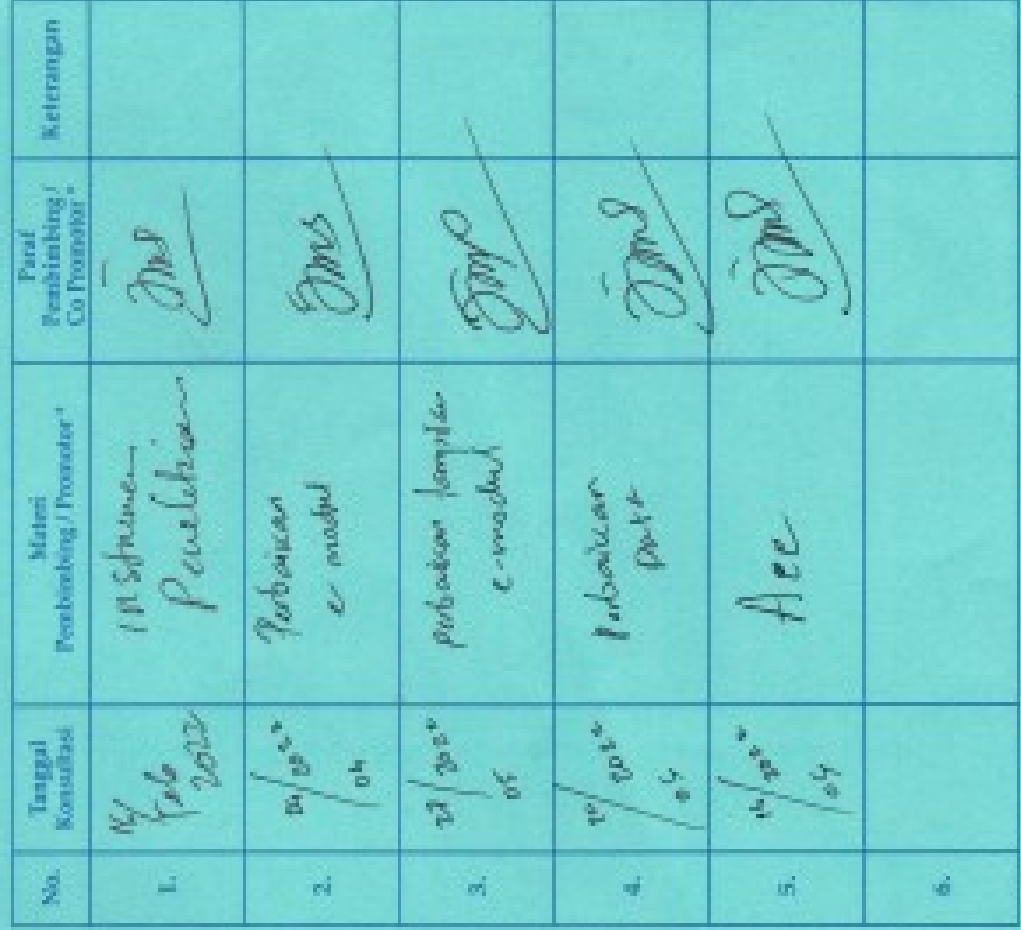 No.
Tanggal
Konsultasi
Materi
Pembimbing / Promotor*
Paraf
Pembimbing /
Co Promotor*
Keterangan
1.
Feb
2022
instrumen
Penelitian
2.
2022
04
Perbaikan
e modul
3.
2022
perbaikan
e-modul
4.
2022
perbaikan
Data
5.
2022
Acc
6.